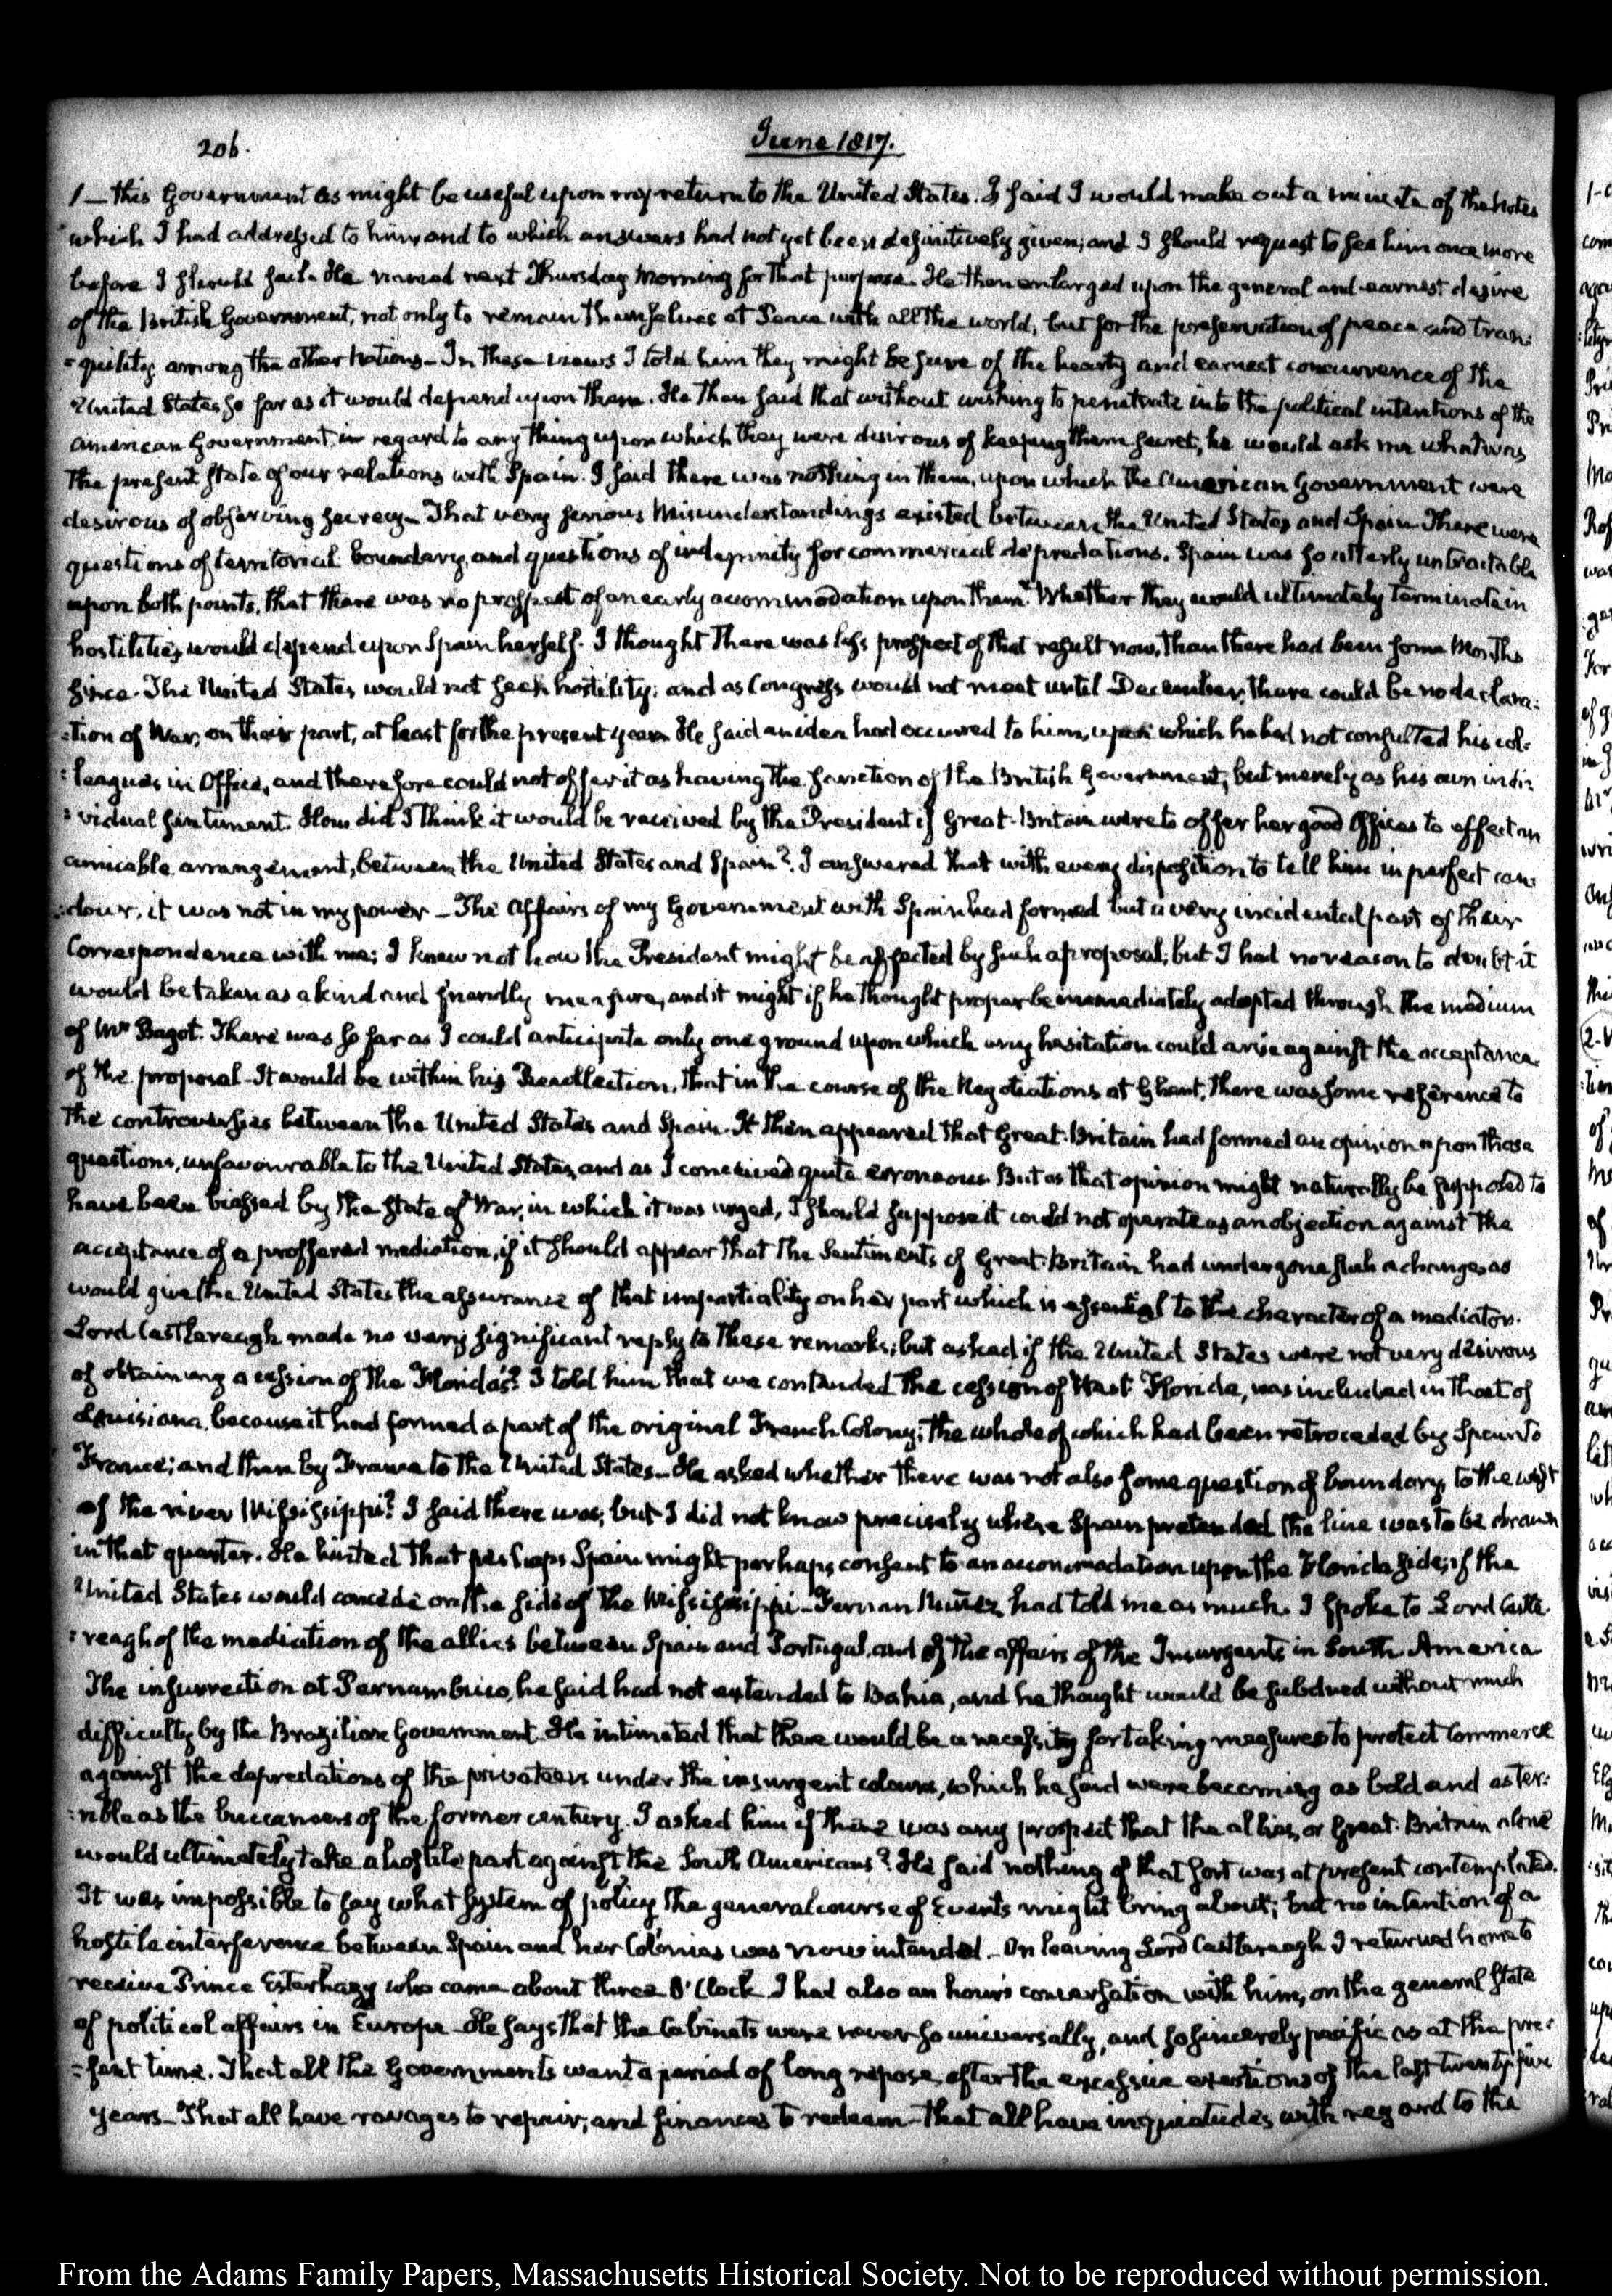 206.
June 1817.
1— this Government as might be useful upon my return to the United States. I said I would make out a minute of the Notes
which I had addressed to him, and to which answers had not yet been definitively given; and I should request to see him once more
before I should sail. He named next Thursday Morning for that purpose. He then enlarged upon the general and earnest desire
of the British Government, not only to remain themselves at Peace with all the world, but for the preservation of peace and tran:
:quility among the other Nations— In these views I told him they might be sure of the hearty and earnest concurrence of the
United States so far as it would depend upon them. He then said that without wishing to penetrate into the political intentions of the
American Government, in regard to any thing upon which they were desirous of keeping them secret, he would ask me what was
the present state of our relations with Spain. I said there was nothing in them, upon which the American Government were
desirous of observing secrecy— That very serious Misunderstandings existed between the United States and Spain. There were
questions of territorial boundary, and questions of indemnity for commercial depredations. Spain was so utterly untractable
upon both points, that there was no prospect of an early accommodation upon them. Whether they would ultimately terminate in
hostilities, would depend upon Spain herself. I thought there was less prospect of that result now, than there had been some Months
since. The United States would not seek hostility; and as Congress would not meet until December, there could be no declara:
:tion of War, on their part, at least for the present year. He said an idea had occurred to him, upon which he had not consulted his col:
:leagues in Office, and therefore could not offer it as having the sanction of the British Government, but merely as his own indi:
:vidual sentiment. How did I think it would be received by the President if Great-Britain were to offer her good Offices to effect an
amicable arrangement, between the United States and Spain? I answered that with every disposition to tell him in perfect can:
:dour, it was not in my power— The affairs of my Government with Spain had formed but a very incidental part of their
Correspondence with me; I knew not how the President might be affected by such a proposal; but I had no reason to doubt it
would be taken as a kind and friendly measure, and it might if he thought proper be immediately adopted through the medium
of Mr Bagot. There was so far as I could anticipate only one ground upon which any hesitation could arise against the acceptance
of the proposal— It would be within his Recollection, that in the course of the Negotiations at Ghent, there was some reference to
the controversies between the United States and Spain. It then appeared that Great-Britain had formed an opinion upon those
questions, unfavourable to the United States, and as I conceived quite erroneous. But as that opinion might naturally be supposed to
have been biassed by the state of War, in which it was urged, I should suppose it could not operate as an objection against the
acceptance of a proffered mediation, if it should appear that the Sentiments of Great-Britain had undergone such a change, as
would give the United States the assurance of that impartiality on her part which is essential to the character of a mediator.
Lord Castlereagh made no very significant reply to these remarks; but asked if the United States were not very desirous
of obtaining a cession of the Florida's? I told him that we contended the cession of West-Florida, was included in that of
Louisiana, because it had formed a part of the original French Colony; the whole of which had been retroceded by Spain to
France; and then by France to the United States— He asked whether there was not also some question of boundary, to the west
of the river Mississippi? I said there was; but I did not know precisely where Spain pretended the line was to be drawn
in that quarter. He hinted that perhaps Spain might perhaps consent to an accommodation upon the Florida side; if the
United States would concede on the side of the Mississippi— Fernan Nuñez had told me as much. I spoke to Lord Castle:
:reagh of the mediation of the allies between Spain and Portugal, and of the affairs of the Insurgents in South America
The insurrection at Pernambuco, he said had not extended to Bahia, and he thought would be subdued without much
difficulty by the Brazilian Government. He intimated that there would be a necessity for taking measures to protect Commerce
against the depredations of the privateers under the insurgent colours, which he said were becoming as bold and as ter:
:rible as the buccaneers of the former century. I asked him if there was any prospect that the allies, or Great-Britain alone
would ultimately take a hostile part against the South Americans? He said nothing of that sort was at present contemplated.
It was impossible to say what system of policy the general course of Events might bring about; but no intention of a
hostile interference between Spain and her Colonies was now intended— On leaving Lord Castlereagh I returned home to
receive Prince Esterhazy who came about three O'Clock. I had also an hour's conversation with him, on the general state
of political affairs in Europe— He says that the Cabinets were never so universally, and so sincerely pacific as at the pre:
:sent time. That all the Governments want a period of long repose, after the excessive exertions of the last twenty-five
years— That all have ravages to repair, and finances to redeem— that all have inquietudes with regard to the
From the Adams Family Papers, Massachusetts Historical Society. Not to be reproduced without permission.